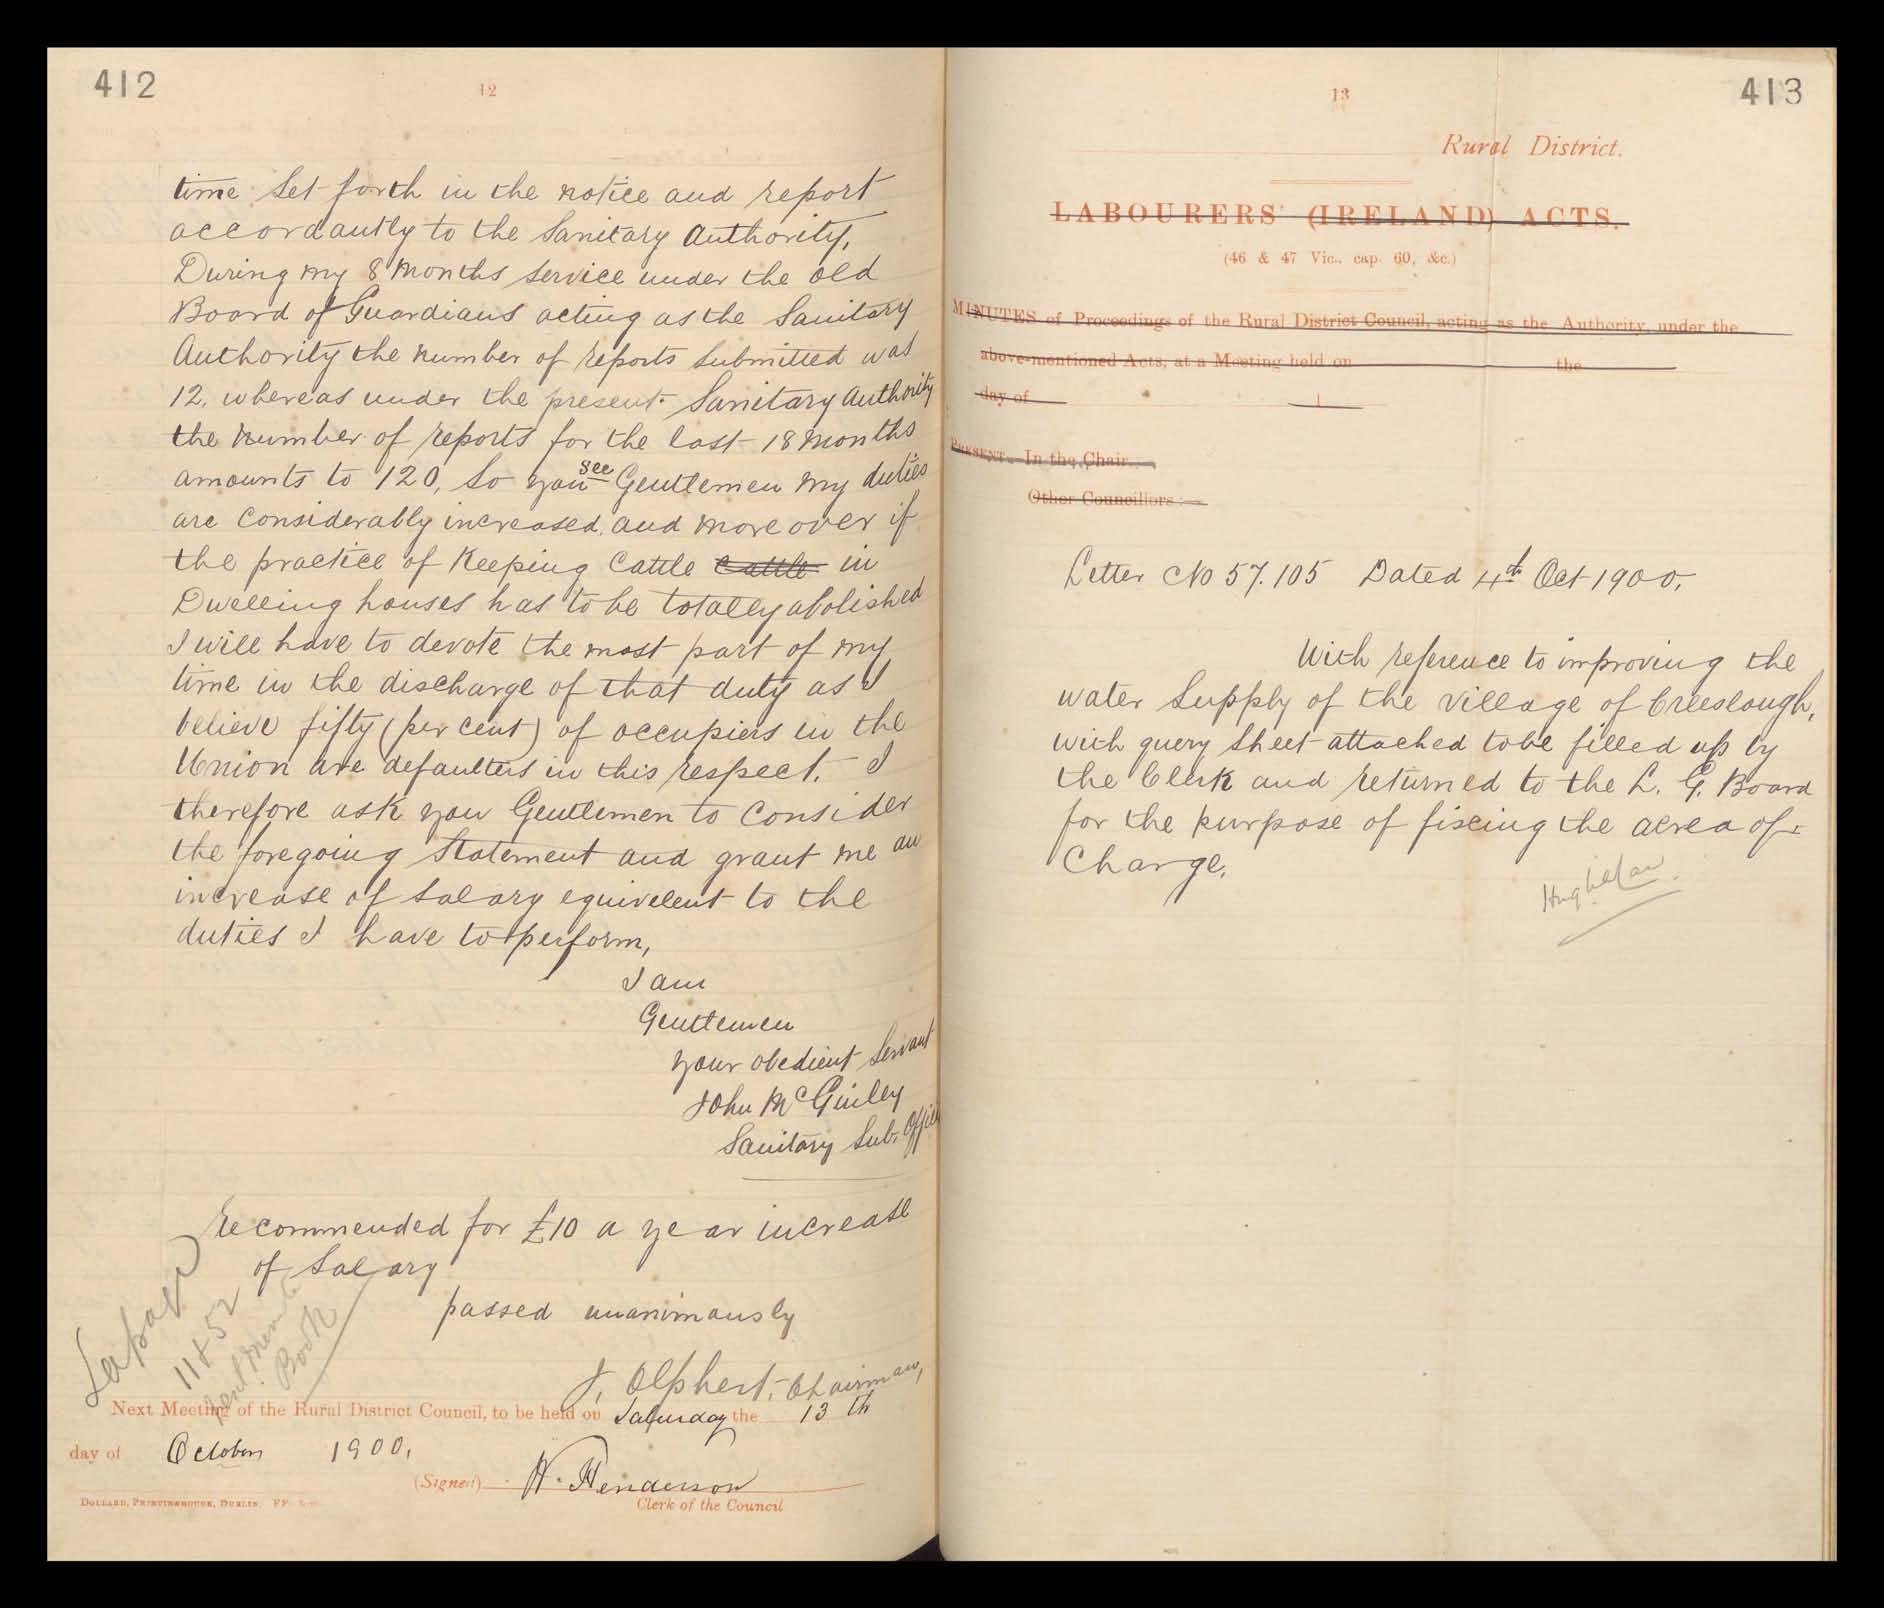 412
12
time set forth in the notice and report
accordantly to the Sanitary Authority,
During my 8 months service under the old
Board of Guardians acting as the Sanitary
Authority the number of reports submitted was
12. whereas under the present Sanitary Authority
the number of reports for the last 18 months
amounts to 120, So you see Gentlemen my duties
are considerably increased. and more over if
the practice of Keeping Cattle Cattle in
Dwelling houses has to be totally abolished
I will have to devote the most part of my
time in the discharge of that duty as I
believe fifty (per cent) of occupiers in the
Union are defaulters in this respect. I
therefore ask you Gentlemen to consider
the foregoing Statement and grant me an
increase of Salary equivelent to the
duties I have to perform,
I am
Gentlemen
your obedient Servant
John McGinley
Sanitary Sub. Officer
Recommended for £10 a year increase
of Salary
passed unanimously
J. Olphert, Chairman,
Book
Next Meeting of the Rural District Council, to be held on Saturday the 13th
day of October 1900.
(Signed) W. Henderson
Clerk of the Council
DOLLARD, PRINTINGHOUSE, DUBLIN.
13
413
Rural District.
LABOURERS' (IRELAND) ACTS.
(46 & 47 Vic., cap. 60, &c.)
MINUTES of Proceedings of the Rural District Council, acting as the Authority, under the
above-mentioned Acts, at a Meeting held on the
day of 1
PRESENT:- In the Chair
Other Councillors:-
Letter No 57.105 Dated 4th Oct 1900,
With reference to improving the
water Supply of the Village of Creeslough,
with query Sheet attached to be filled up by
the Clerk and returned to the L. G. Board
for the purpose of fixing the acrea of
Charge.
Hugh Law